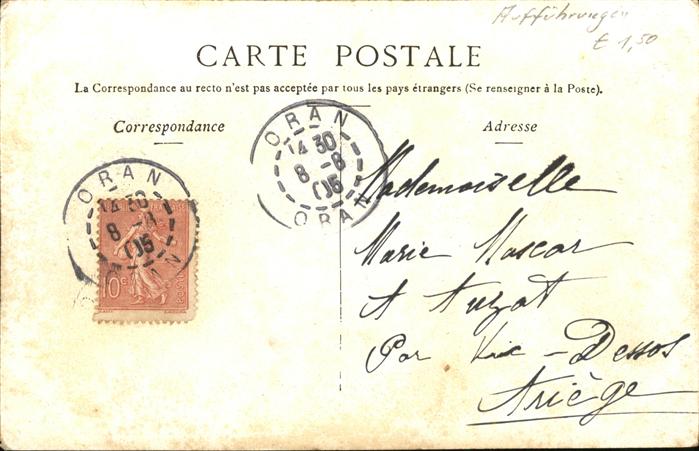 Aufführungen
€ 1,50
CARTE POSTALE
La Correspondance au recto n'est pas acceptée par tous les pays étrangers (Se renseigner à la Poste).
Correspondance
Adresse
ORAN
14 30
8 -8
05
ORAN
ORAN
14 30
8 -8
05
10c
Mademoiselle
Marie Mascar
A Auzat
Par Vic-Dessos
Ariège